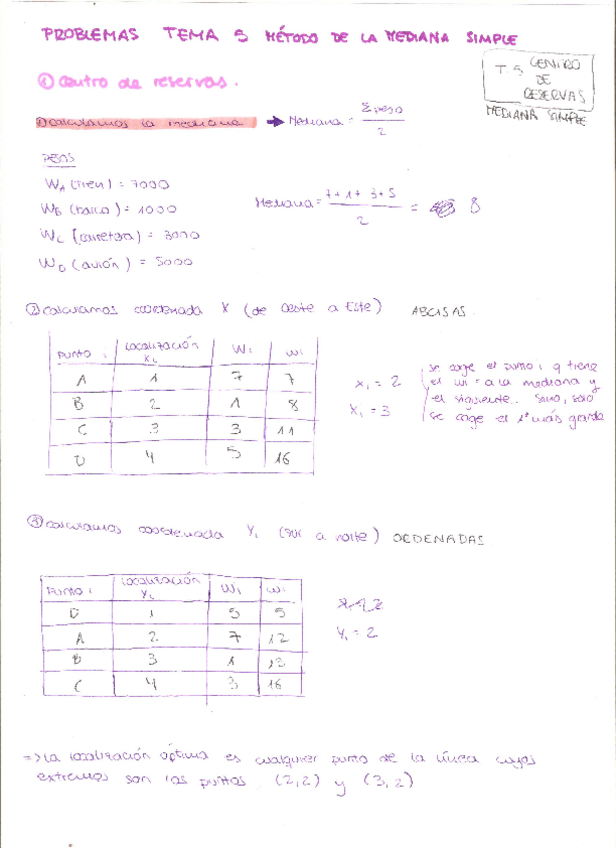 PROBLEMAS TEMA 5 MÉTODO DE LA MEDIANA SIMPLE
T.5 CENTRO
DE
RESERVAS
MEDIANA SIMPLE
① centro de reservas.
① calculamos la mediana → Mediana = Σ peso / 2
PESOS
WA (tren) = 7000
WB (barco) = 1000
WC (carretera) = 3000
WD (avión) = 5000
Mediana = 7+1+3+5 / 2 = 8
② calculamos coordenada X (de oeste a Este) ABCISAS
PUNTO i | Localización Xi | Wi | wi
A | 1 | 7 | 7
B | 2 | 1 | 8
C | 3 | 3 | 11
D | 4 | 5 | 16
x1 = 2
x1 = 3
se coge el punto i q tiene
el wi = a la mediana y
el siguiente. Sino, solo
se coge el 1º más grande
③ calculamos coordenada Yi (sur a norte) ORDENADAS
PUNTO i | Localización Yi | Wi | wi
D | 1 | 5 | 5
A | 2 | 7 | 12
B | 3 | 1 | 13
C | 4 | 3 | 16
Y1 = 2
=> La localización óptima es cualquier punto de la línea cuyos
extremos son los puntos (2,2) y (3,2)